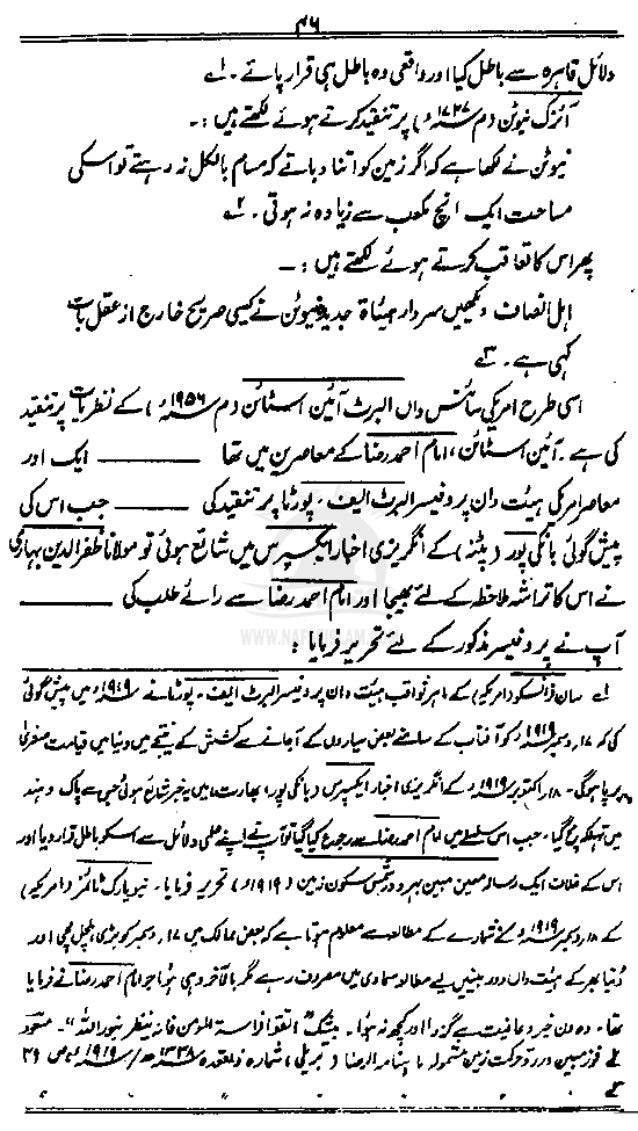 ۴۶
دلائل قاہرہ سے باطل کیا اور واقعی وہ باطل ہی قرار پائے۔ ۱ے
آئزک نیوٹن (م ۱۷۲۷ء) پر تنقید کرتے ہوئے لکھتے ہیں :۔
نیوٹن نے لکھا ہے کہ اگر زمین کو اتنا دباتے کہ مسام بالکل نہ رہتے تو اسکی
مساحت ایک انچ مکعب سے زیادہ نہ ہوتی۔ ۲ے
پھر اس کا تعاقب کرتے ہوئے لکھتے ہیں :۔
اہل انصاف دیکھیں سردار ہیئاۃ جدیدہ نیوٹن نے کیسی صریح خارج از عقل بات
کہی ہے۔ ۳ے
اسی طرح امریکی سائنس داں البرٹ آئین اسٹائن (م ۱۹۵۶ء) کے نظریات پر تنقید
کی ہے۔ آئین اسٹائن، امام احمد رضا کے معاصرین میں تھا ——— ایک اور
معاصر امریکی ہیئت دان پروفیسر البرٹ ایف۔ پورٹا پر تنقید کی ——— جب اس کی
پیش گوئی بانکی پور (پٹنہ) کے انگریزی اخبار ایکسپرس میں شائع ہوئی تو مولانا ظفر الدین بہاری
نے اس کا تراشہ ملاحظہ کے لئے بھیجا اور امام احمد رضا سے رائے طلب کی ———
آپ نے پروفیسر مذکور کے لئے تحریر فرمایا :
WWW.NAFSEISLAM.COM
۱ے سان فرانسسکو (امریکہ) کے ماہر نواقب ہیئت دان پروفیسر البرٹ ایف۔ پورٹا نے ۱۹۱۹ء میں پیش گوئی
کی کہ ۱۷ دسمبر ۱۹۱۹ء کو آفتاب کے سامنے بعض سیاروں کے آجانے سے کشش کے نتیجے میں دنیا میں قیامت صغریٰ
برپا ہوگی۔ ۱۸ اکتوبر ۱۹۱۹ء کے انگریزی اخبار ایکسپرس (بانکی پور، بھارت) میں یہ خبر شائع ہوئی جس سے پاک و ہند
میں تہلکہ مچ گیا۔ جب اس سلسلے میں امام احمد رضا سے رجوع کیا گیا تو آپ نے اپنے علمی دلائل سے اسکو باطل قرار دیا اور
اس کے خلاف ایک رسالہ معین مبین بہر دور شمس و سکون زمین (۱۹۱۹ء) تحریر فرمایا۔ نیویارک ٹائمز (امریکہ)
کے ۱۸ دسمبر ۱۹۱۹ء کے شمارے کے مطالعہ سے معلوم ہوتا ہے کہ بعض ممالک میں ۱۷ دسمبر کو بڑی ہلچل مچی اور
دُنیا بھر کے ہیئت داں دور بینیں لیے مطالعہ سماوی میں مصروف رہے مگر بالآخر وہی ہوا جو امام احمد رضا نے فرمایا
تھا۔ وہ دن خیر و عافیت سے گزرا اور کچھ نہ ہوا۔ بیشک "اتقوا فراسۃ المومن فانہ ینظر بنور اللہ"۔ مسعود
۲ے فوز مبین در رد حرکت زمین مشمولہ ماہنامہ الرضا (بریلی) شمارہ ذیقعدہ ۱۳۳۸ھ/۱۹۱۹ء ص ۳۹
۳ے